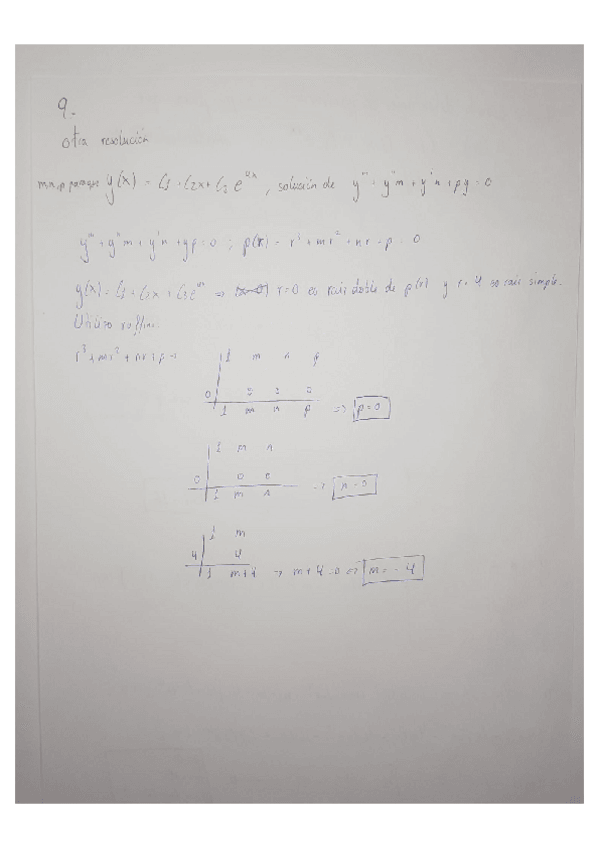 9.-
otra resolución
m,n,p para que y(x) = C1 + C2x + C2 e^4x, solución de y''' + y''m + y'n + py = 0
y''' + y''m + y'n + yp = 0 ; p(r) = r³ + mr² + nr + p = 0
y(x) = C1 + C2x + C3e^4x ⇒ r=0 es raíz doble de p(r) y r=4 es raíz simple.
Utilizo ruffini:
r³ + mr² + nr + p ⇒
1 m n p
0 0 0 0
1 m n p ⇒ p=0
1 m n
0 0 0
1 m n ⇒ n=0
1 m
4 4
1 m+4 → m+4=0 ⇒ m=-4